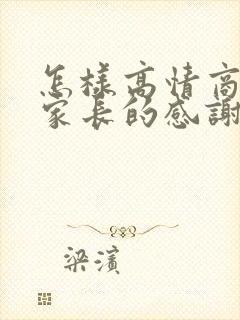 怎樣高情商
家長的感謝
梁濱